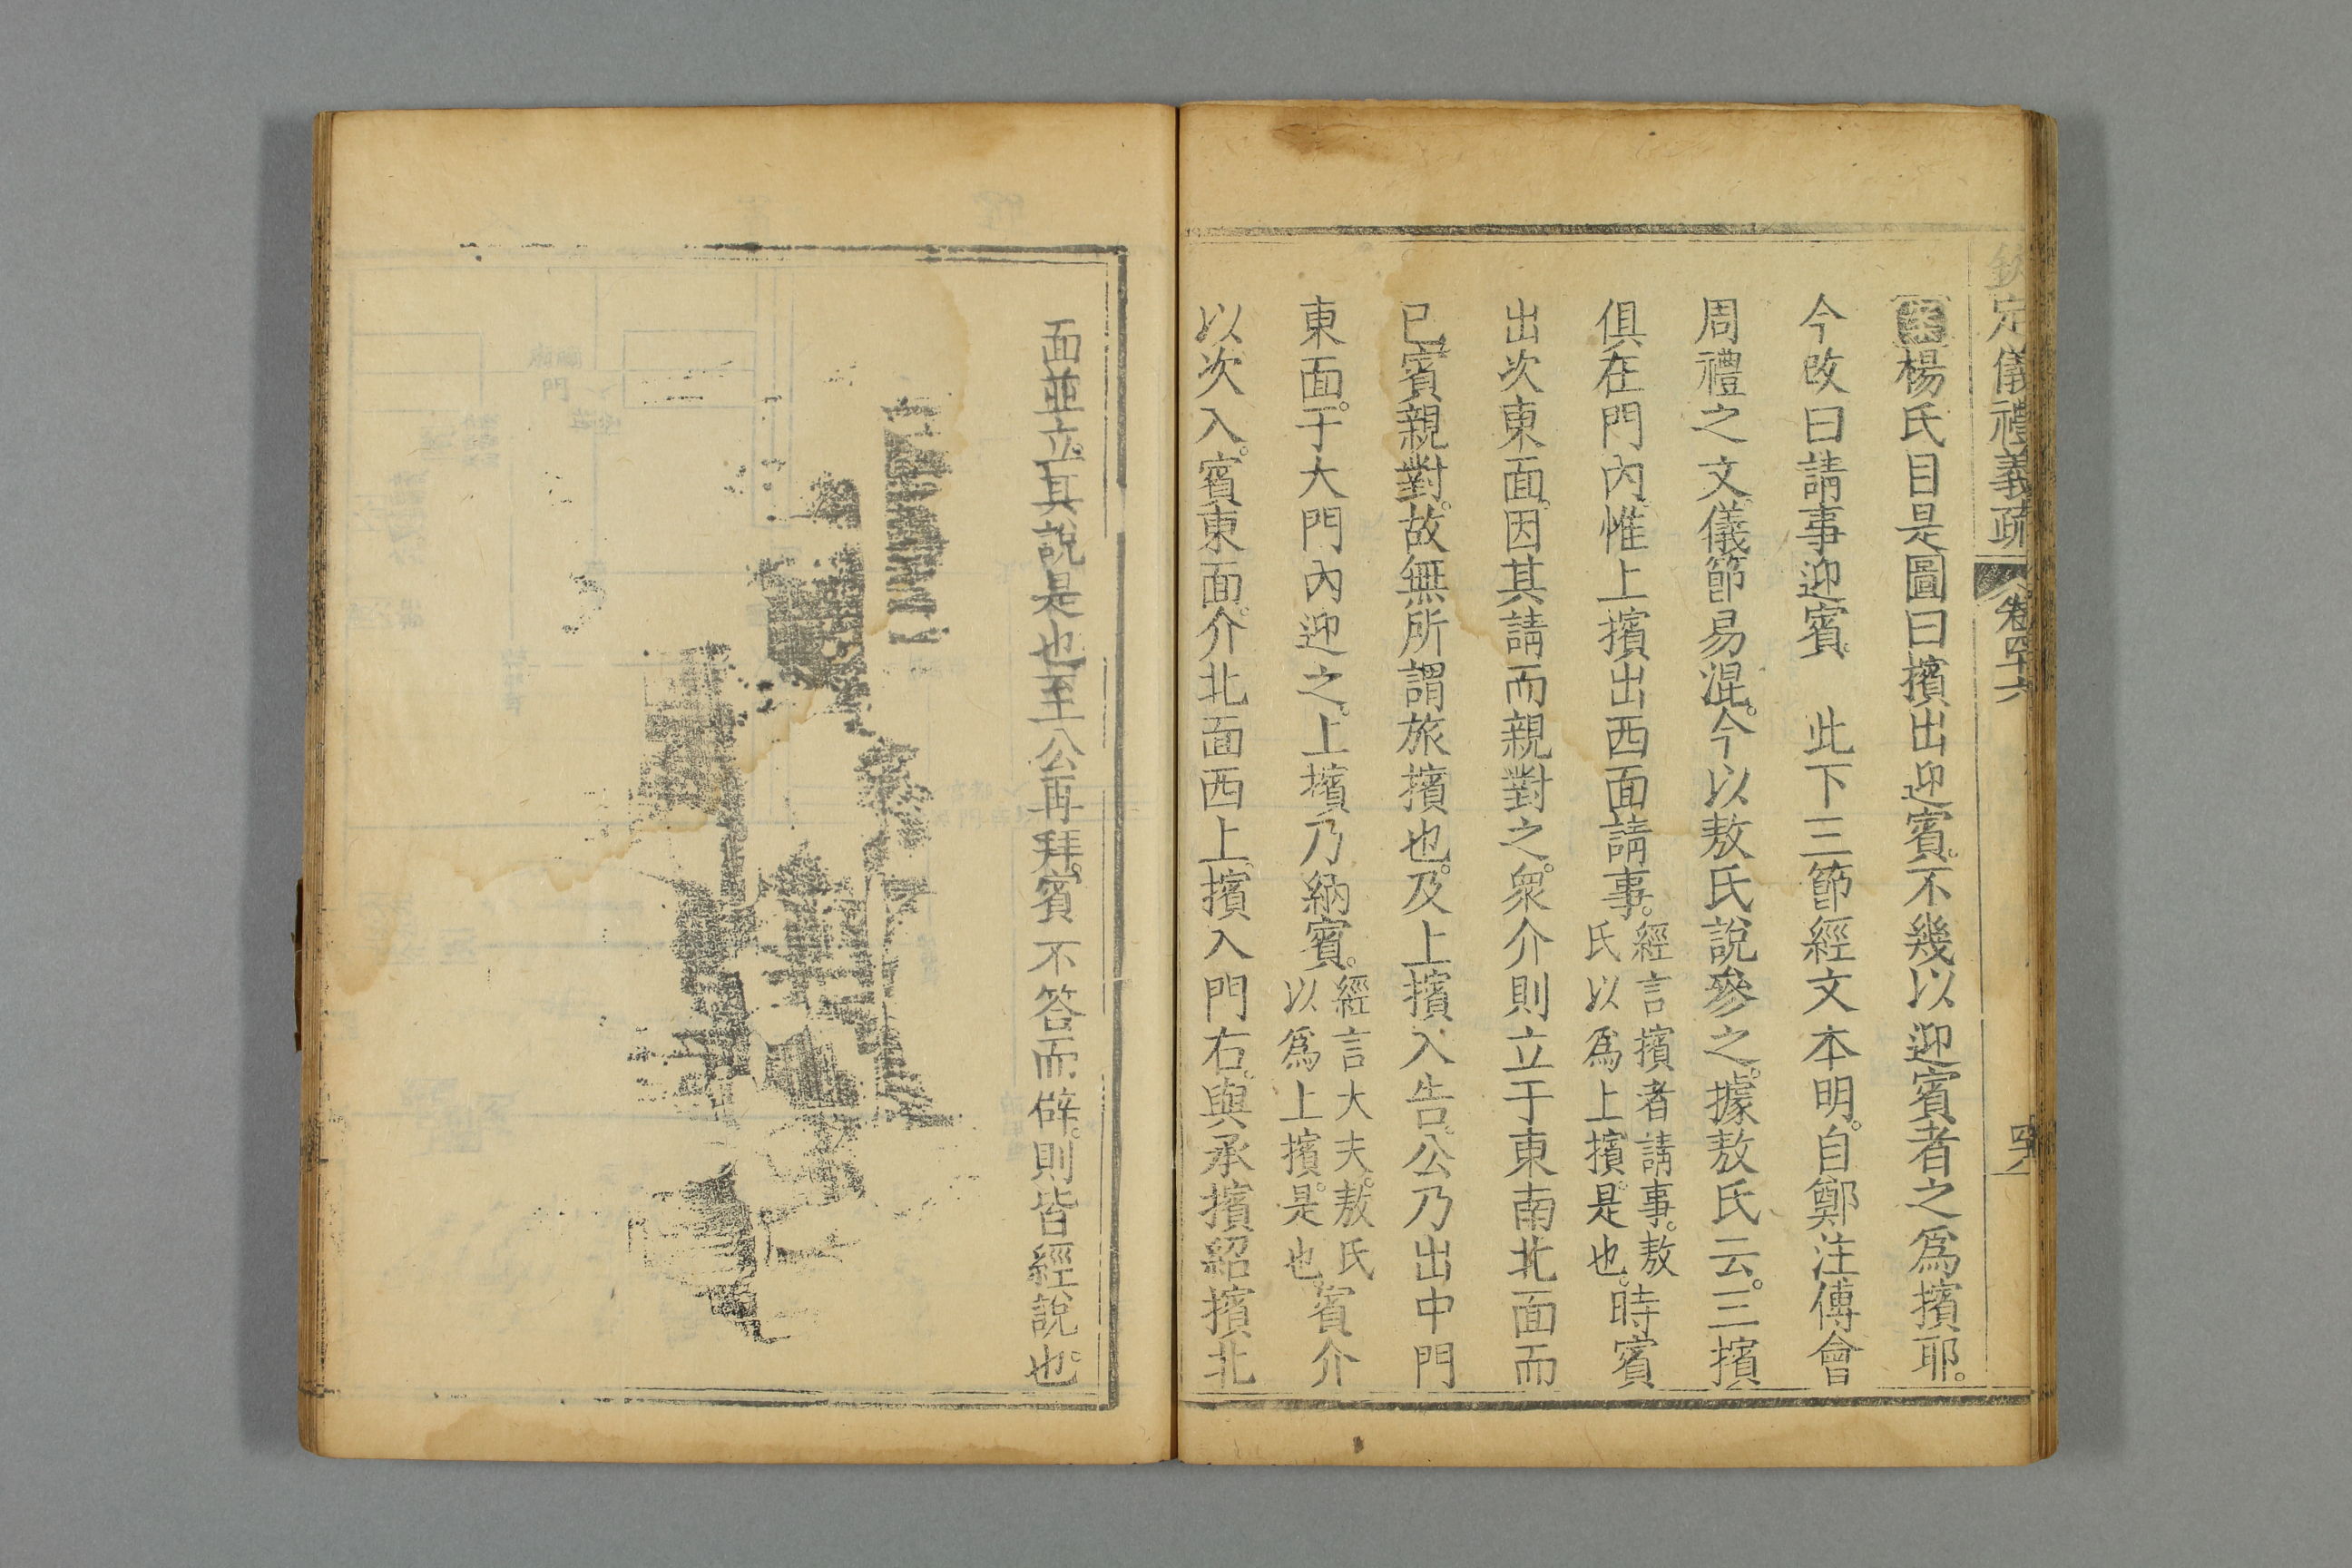 欽定儀禮義疏 卷四十六 四六
案楊氏目是圖曰擯出迎賓。不幾以迎賓者之爲擯耶。
今改曰請事迎賓。 此下三節經文本明。自鄭注傅會
周禮之文。儀節易混。今以敖氏說參之。據敖氏云。三擯
俱在門內。惟上擯出西面請事。經言擯者請事。敖氏以爲上擯。是也。時賓
出次東面。因其請而親對之。衆介則立于東南北面而
已。賓親對。故無所謂旅擯也。及上擯入告。公乃出中門
東面。于大門內迎之。上擯乃納賓。經言大夫。敖氏以爲上擯。是也。賓介
以次入。賓東面。介北面西上。擯入門右。與承擯紹擯北
面並立。其說是也。至公再拜。賓不答而辟。則皆經說也。